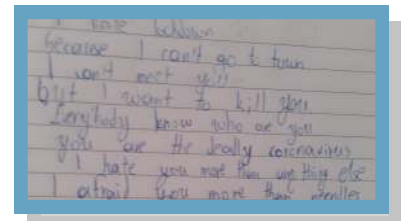 I hate lockdown
because I can't go to town
I can't meet
but I want to kill you
Everybody know who are you
you are the deadly coronavirus
I hate you more than any thing else
I afraid you more than needles